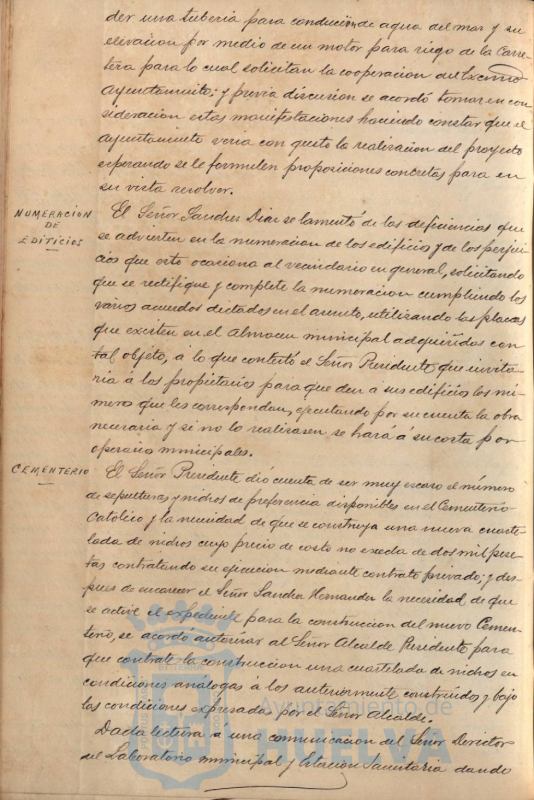 der una tuberia para conducción de agua del mar y su
elevacion por medio de un motor para riego de la Carre
tera para lo cual solicitan la cooperacion del Excmo
Ayuntamiento; y previa discusion se acordó tomar en con
sideracion estas manifestaciones haciendo constar que el
Ayuntamiento veria con gusto la realizacion del proyecto
esperando se le formulen proposiciones concretas para en
su vista resolver.
NUMERACION
DE
EDIFICIOS
El Señor Sanchez Diaz se lamentó de las deficiencias que
se advierten en la numeracion de los edificios y de los perjui
cios que esto ocasiona al vecindario en general, solicitando
que se rectifique y complete la numeracion cumpliendo los
varios acuerdos dictados en el asunto, utilizando las placas
que existen en el Almacen municipal adquiridas con
tal objeto, á lo que contestó el Señor Presidente que invita
ria á los propietarios para que den á sus edificios los nú
meros que les correspondan, ejecutando por su cuenta la obra
necesaria y si no lo realizasen se hará á su costa por
operarios municipales.
CEMENTERIO
El Señor Presidente dió cuenta de ser muy escaso el número
de sepulturas y nidros de preferencia disponibles en el Cementerio
Catolico y la necesidad de que se construya una nueva cuarte
lada de nidros cuyo precio de costo no exceda de dos mil pese
tas contratando su ejecucion mediante contrato privado; y des
pues de encarecer el Señor Sanchez Hernandez la necesidad de que
se active el expediente para la construccion del nuevo Cemen
terio, se acordó autorizar al Señor Alcalde Presidente para
que contrate la construccion una cuartelada de nidros en
condiciones análogas á los anteriormente construidos y bajo
las condiciones expresadas por el Señor Alcalde.
Dada lectura a una comunicacion del Señor Director
del Laboratorio municipal y Estacion Sanitaria dando
Ayuntamiento de
HUELVA